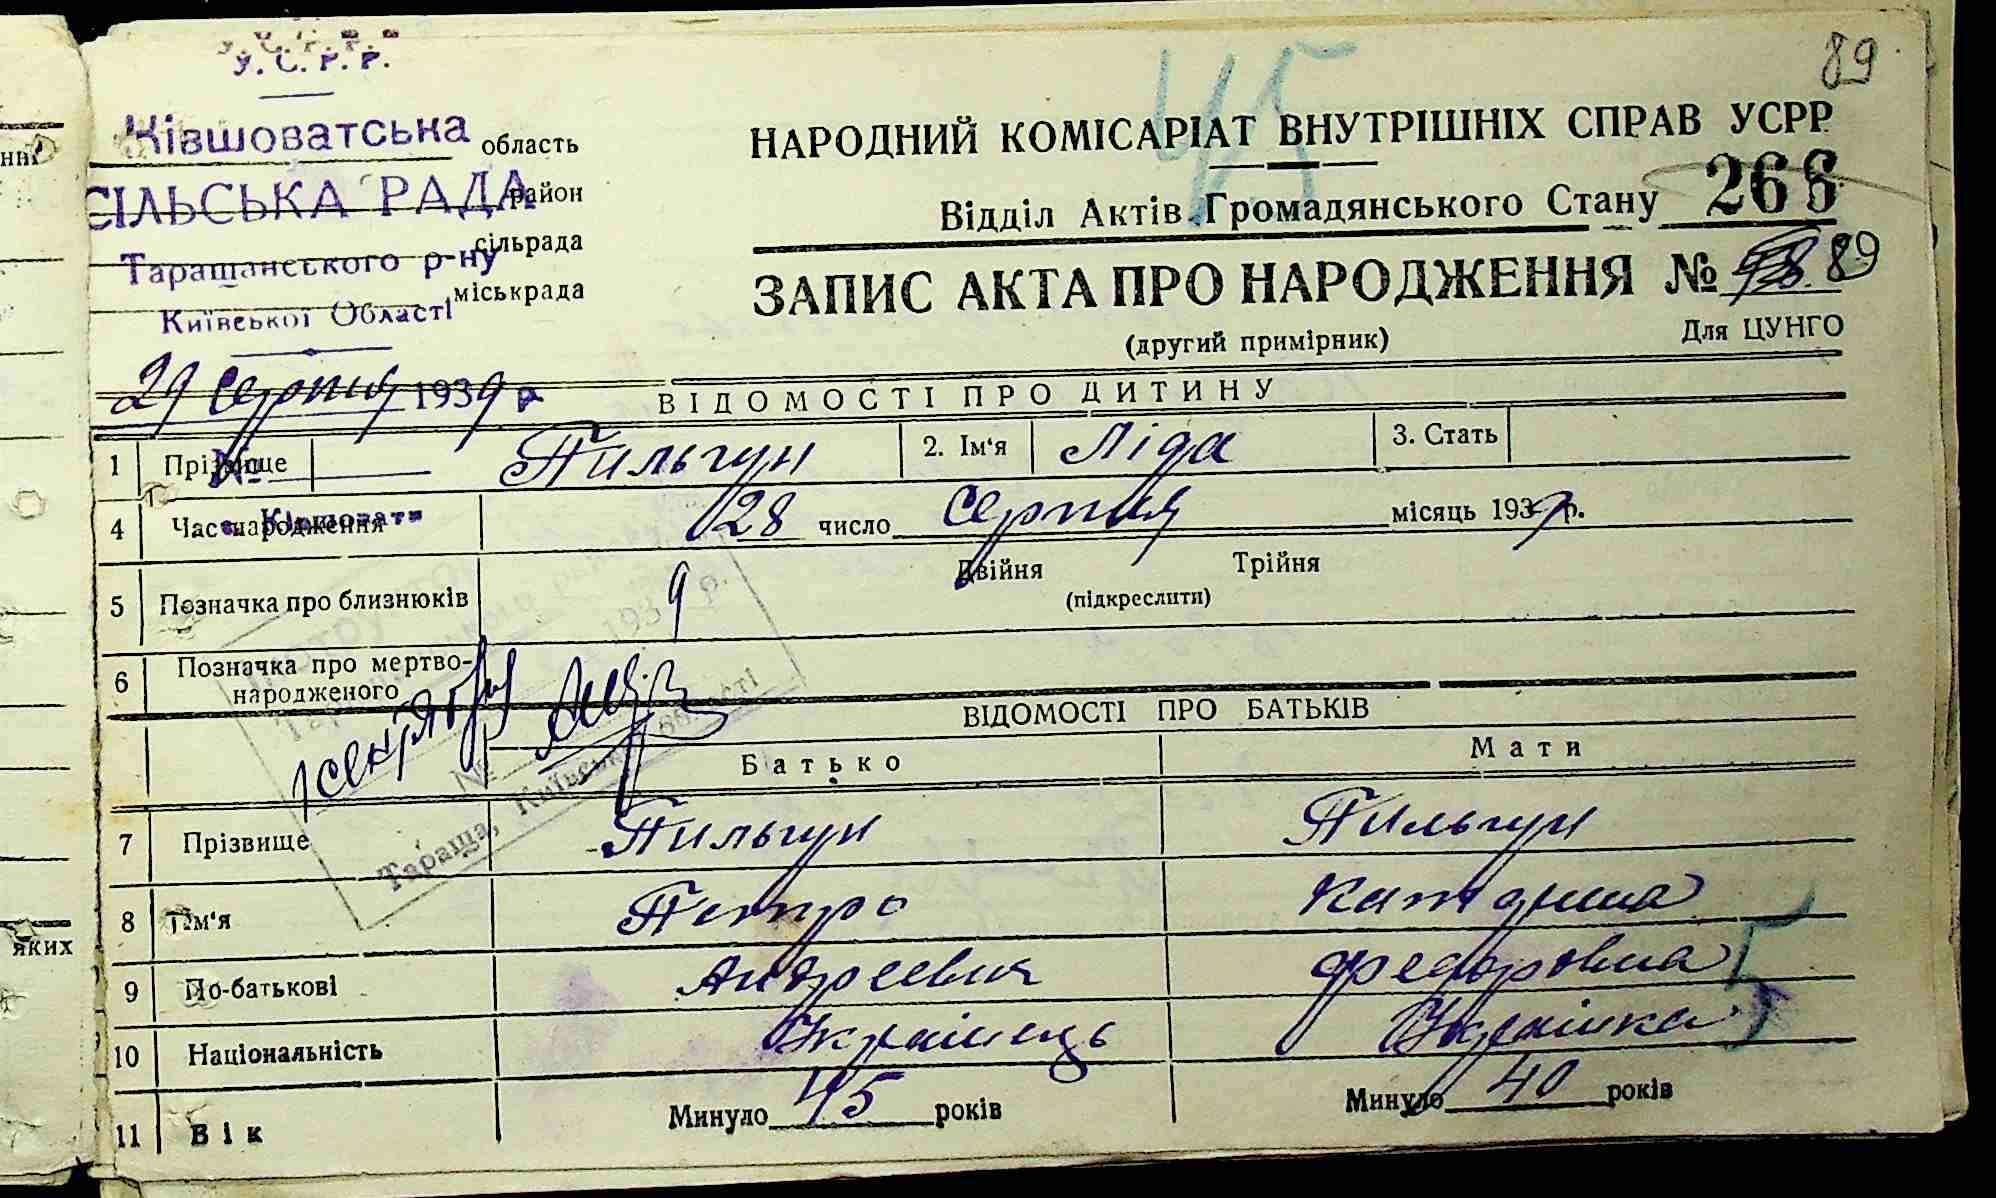 У. С. Р. Р.
У. С. Р. Р.
89
45
Ківшоватська область
СІЛЬСЬКА РАДА район
сільрада
Таращанського р-ну
міськрада
Київської Області
НАРОДНИЙ КОМІСАРІАТ ВНУТРІШНІХ СПРАВ УСРР
Відділ Актів Громадянського Стану 266
ЗАПИС АКТА ПРО НАРОДЖЕННЯ № 89
(другий примірник) Для ЦУНГО
29 Серпня 1939 р
ВІДОМОСТІ ПРО ДИТИНУ
1 Прізвище Пильгун 2. Ім'я Ліда 3. Стать
№
4 Час народження 28 число Серпня місяць 1939 р.
с. Ківшовати
5 Позначка про близнюків 9 Двійня Трійня
(підкреслити)
6 Позначка про мертво-
народженого
193 р.
№
Тараща, Київської області
ВІДОМОСТІ ПРО БАТЬКІВ
Батько Мати
7 Прізвище Пильгун Пильгун
8 Ім'я Петро Катерина
9 По-батькові Андреевич Федоровна
10 Національність Українець Українка
11 Вік Минуло 45 років Минуло 40 років
яких